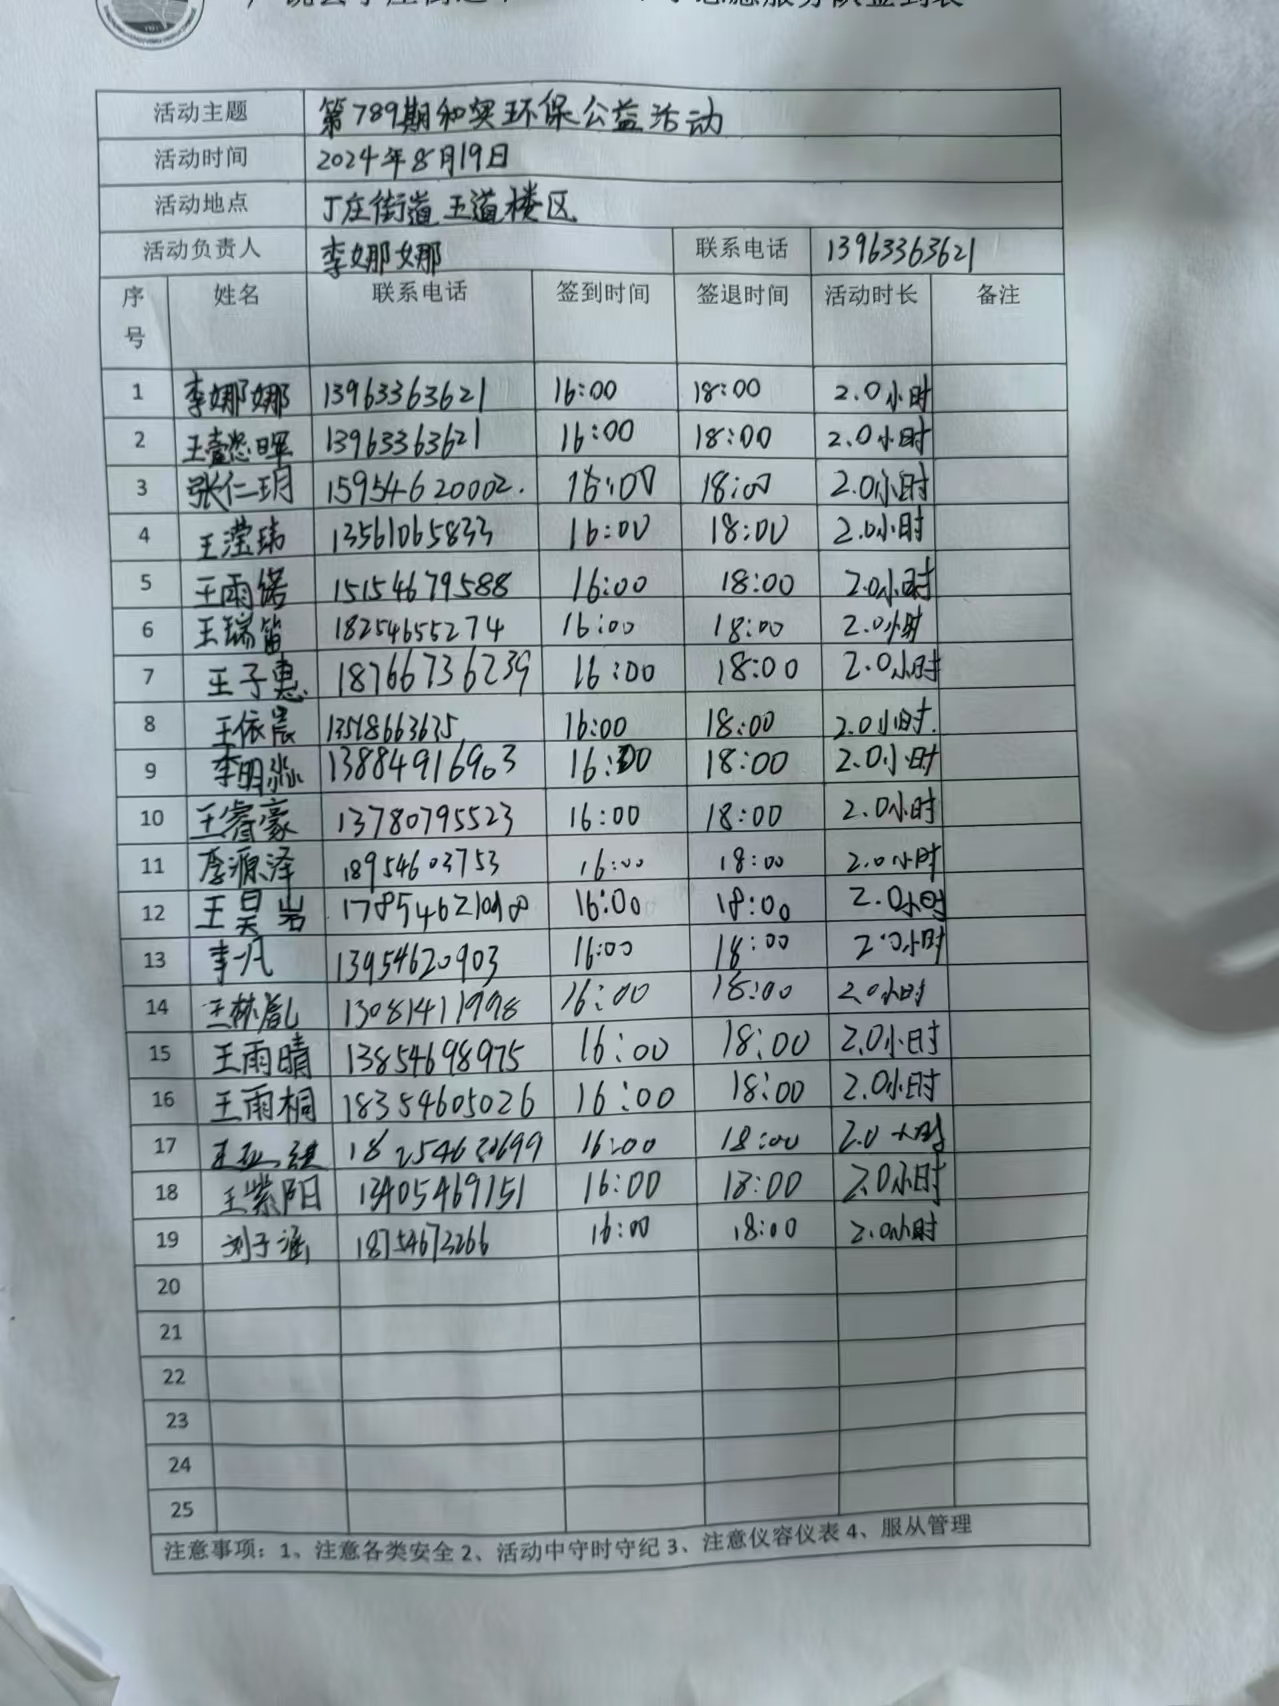 活动主题 第789期和美环保公益活动
活动时间 2024年8月19日
活动地点 丁庄街道王道楼区
活动负责人 李娜娜 联系电话 13963363621
序号 姓名 联系电话 签到时间 签退时间 活动时长 备注
1 李娜娜 13963363621 16:00 18:00 2.0小时
2 王懿晖 13963363621 16:00 18:00 2.0小时
3 张仁玥 15954620002. 16:00 18:00 2.0小时
4 王滢玮 13561065833 16:00 18:00 2.0小时
5 王雨偌 15154679588 16:00 18:00 2.0小时
6 王瑞笛 18254655274 16:00 18:00 2.0小时
7 王子惠 18766736239 16:00 18:00 2.0小时
8 王依宸 16:00 18:00 2.0小时.
9 李明淼 13884916903 16:00 18:00 2.0小时
10 王睿豪 13780795523 16:00 18:00 2.0小时
11 李源泽 18954603753 16:00 18:00 2.0小时
12 王昊岩 16:00 18:00 2.0小时
13 李一凡 13954620903 16:00 18:00 2.0小时
14 王林胤 13081411998 16:00 18:00 2.0小时
15 王雨晴 13854698975 16:00 18:00 2.0小时
16 王雨桐 18354605026 16:00 18:00 2.0小时
17 16:00 18:00 2.0小时
18 王紫阳 13405469151 16:00 18:00 2.0小时
19 刘子涵 16:00 18:00 2.0小时
20
21
22
23
24
25
注意事项：1、注意各类安全 2、活动中守时守纪 3、注意仪容仪表 4、服从管理